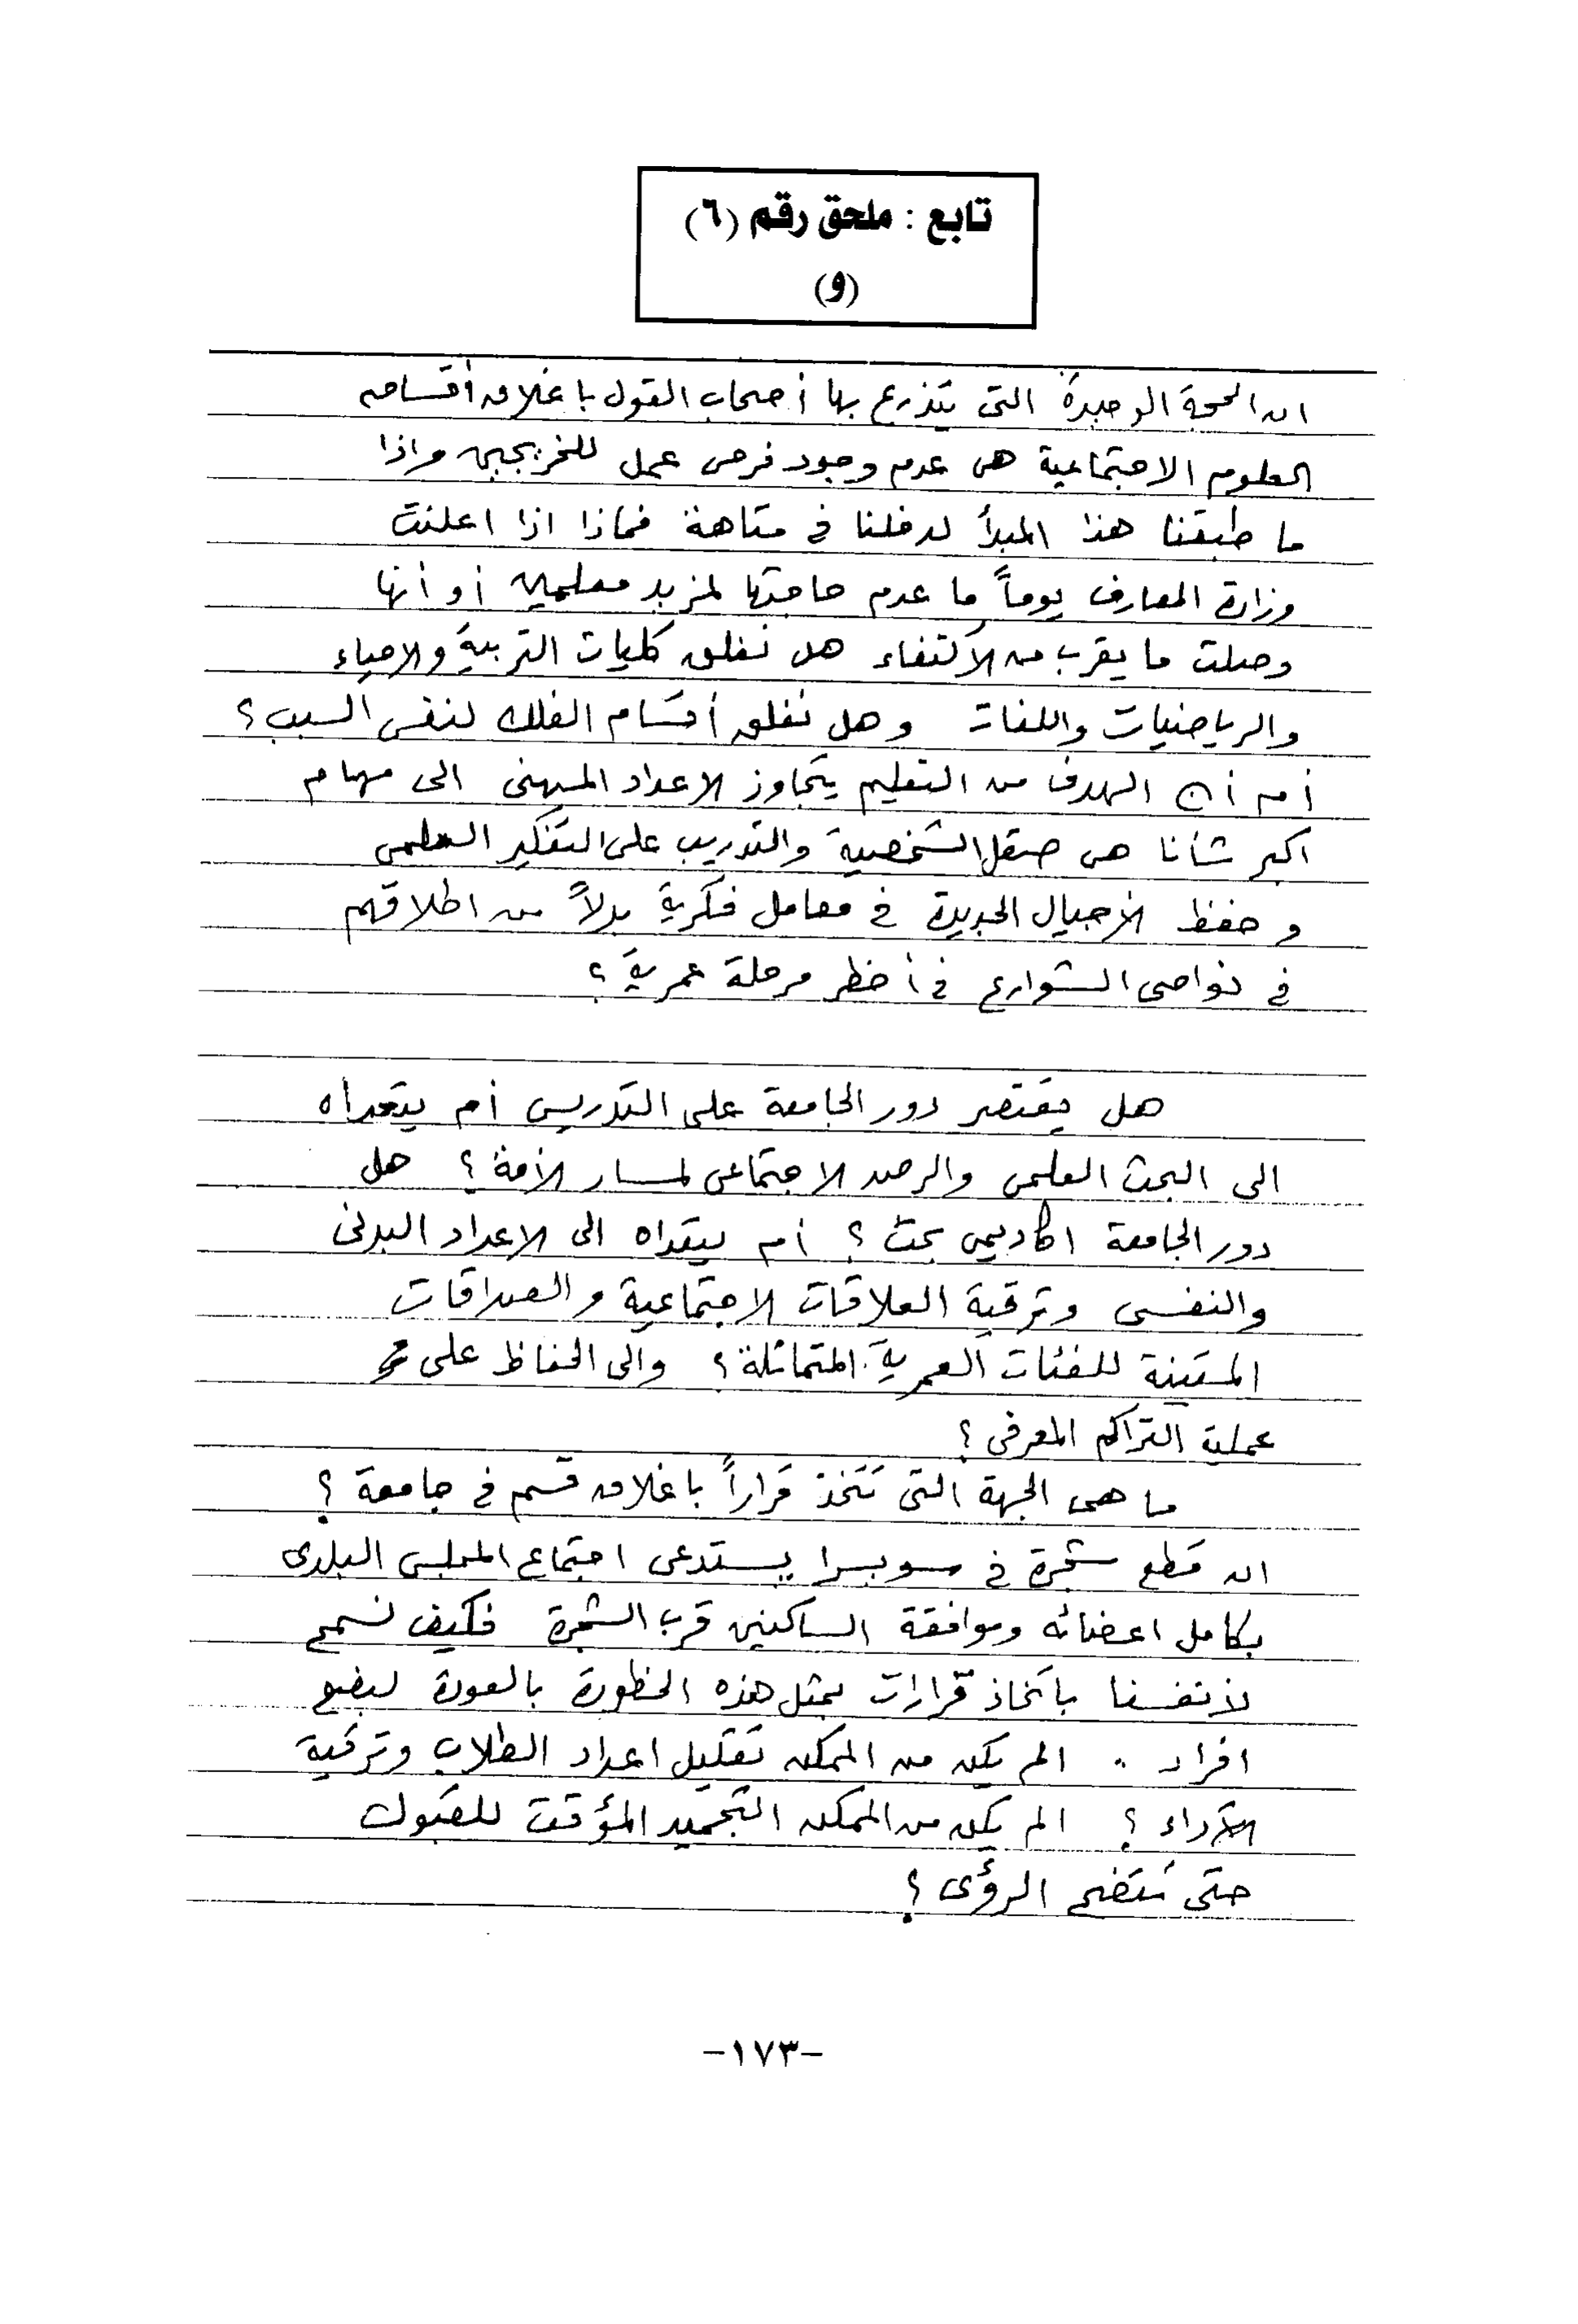 تابع : ملحق رقم (٦)
(و)
ان الحجة الوحيدة التى يتذرع بها أصحاب القول باغلاق أقسام
العلوم الاجتماعية هى عدم وجود فرص عمل للخريجين واذا
ما طبقنا هذا المبدأ لدخلنا فى متاهة فماذا اذا اعلنت
وزارة المعارف يوماً ما عدم حاجتها لمزيد معلمين أو أنها
وصلت ما يقرب من الأكتفاء هل نغلق كليات التربية والاحياء
والرياضيات واللغات وهل نغلق أقسام الفلك لنفس السبب ؟
أم أن الهدف من التعليم يتجاوز الاعداد المهنى الى مهام
اكبر شأنا هى صقل الشخصية والتدريب على التفكير العلمى
وحفظ الأجيال الجديدة فى معامل فكرية بدلاً من اطلاقهم
فى نواصى الشوارع فى أخطر مرحلة عمرية ؟
هل يقتصر دور الجامعة على التدريس أم يتعداه
الى البحث العلمى والرصد الاجتماعى لمسار الأمة ؟ هل
دور الجامعة اكاديمى بحت ؟ أم يتعداه الى الاعداد البدنى
والنفسى وترقية العلاقات الاجتماعية والصداقات
المتينة للفئات العمرية المتماثلة ؟ والى الحفاظ على
عملية التراكم المعرفى ؟
ما هى الجهة التى تتخذ قراراً باغلاق قسم فى جامعة ؟
ان قطع شجرة فى سويسرا يستدعى اجتماع المجلس البلدى
بكامل اعضائه وموافقة الساكنين قرب الشجرة فكيف نسمح
لأنفسنا باتخاذ قرارات بمثل هذه الخطورة بالعودة لبضع
افراد . الم يكن من الممكن تقليل اعداد الطلاب وترقية
الأداء ؟ الم يكن من الممكن التجميد المؤقت للقبول
حتى تتضح الرؤى ؟
-١٧٣-